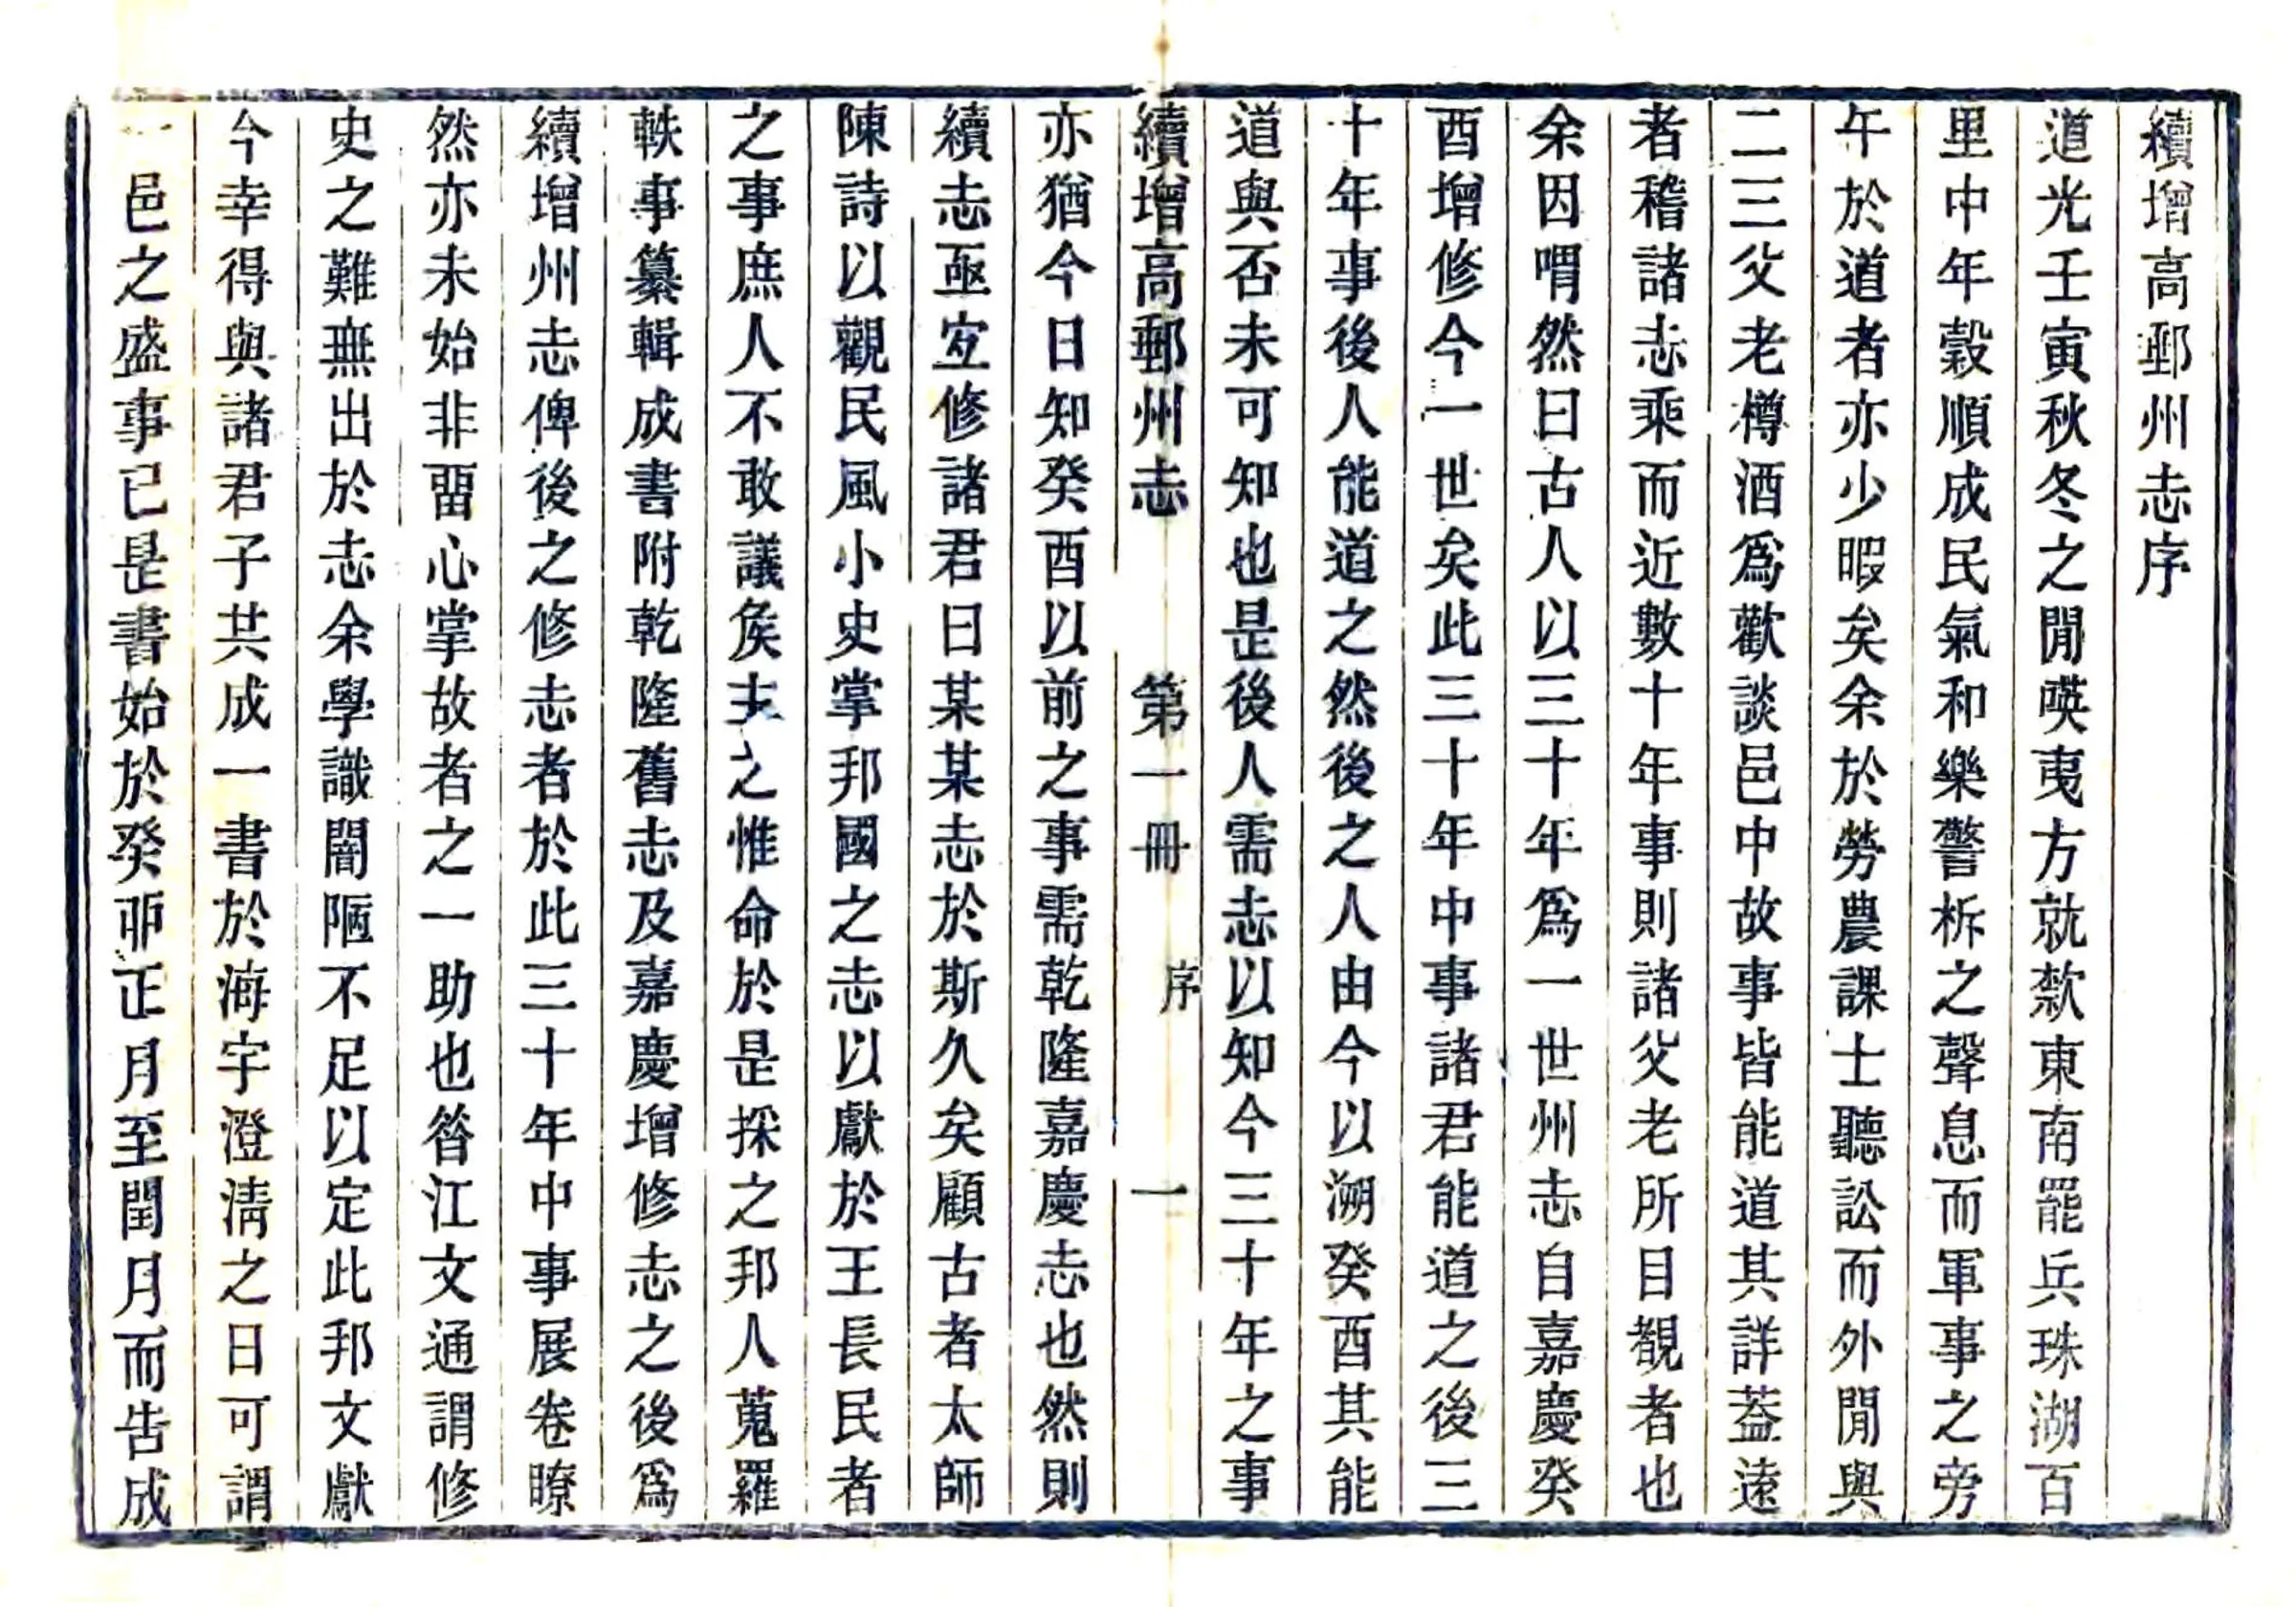 續增高郵州志序
道光壬寅秋冬之閒㗲夷方就欵東南罷兵珠湖百
里中年穀順成民氣和樂警柝之聲息而軍事之旁
午於道者亦少暇矣余於勞農課士聽訟而外閒與
二三父老樽酒爲歡談邑中故事皆能道其詳葢遠
者稽諸志乘而近數十年事則諸父老所目覩者也
余因喟然曰古人以三十年爲一世州志自嘉慶癸
酉增修今一世矣此三十年中事諸君能道之後三
十年事後人能道之然後之人由今以溯癸酉其能
道與否未可知也是後人需志以知今三十年之事
續增高郵州志 第一冊 序 一
亦猶今日知癸酉以前之事需乾隆嘉慶志也然則
續志亟宐修諸君曰某某志於斯久矣顧古者太師
陳詩以觀民風小史掌邦國之志以獻於王長民者
之事庶人不敢議矦主之惟命於是採之邦人蒐羅
軼事纂輯成書附乾隆舊志及嘉慶增修志之後爲
續增州志俾後之修志者於此三十年中事展卷瞭
然亦未始非畱心掌故者之一助也昝江文通謂修
史之難無出於志余學識闇陋不足以定此邦文獻
今幸得與諸君子共成一書於海宇澄淸之日可謂
一邑之盛事已是書始於癸丣正月至閏月而告成